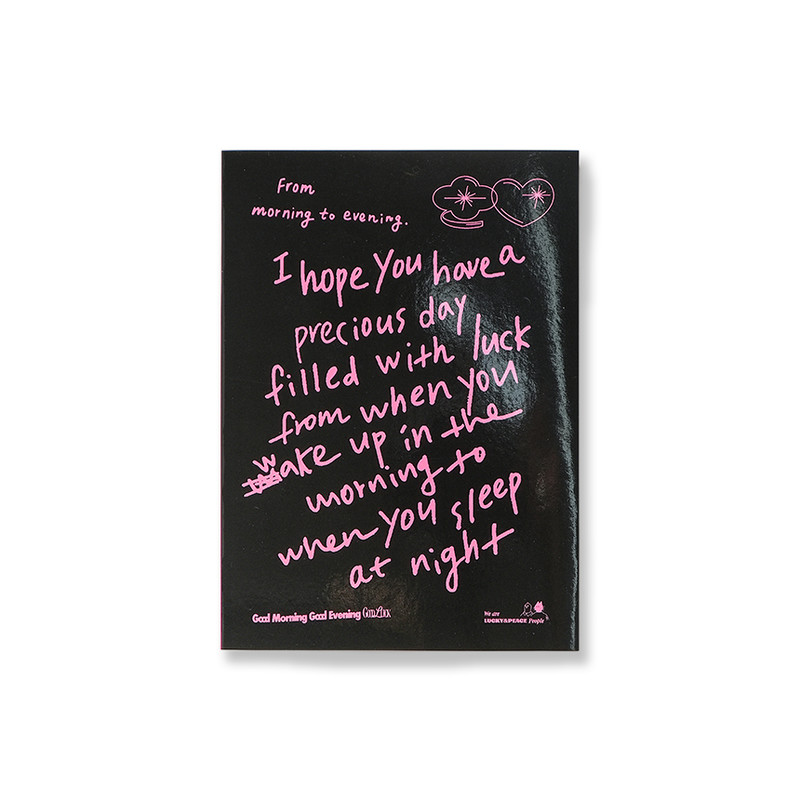 From
morning to evening.
I hope you have a
precious day
filled with luck
from when you
wake up in the
morning to
when you sleep
at night
Good Morning Good Evening Good Luck
We are
LUCKY&PEACE People